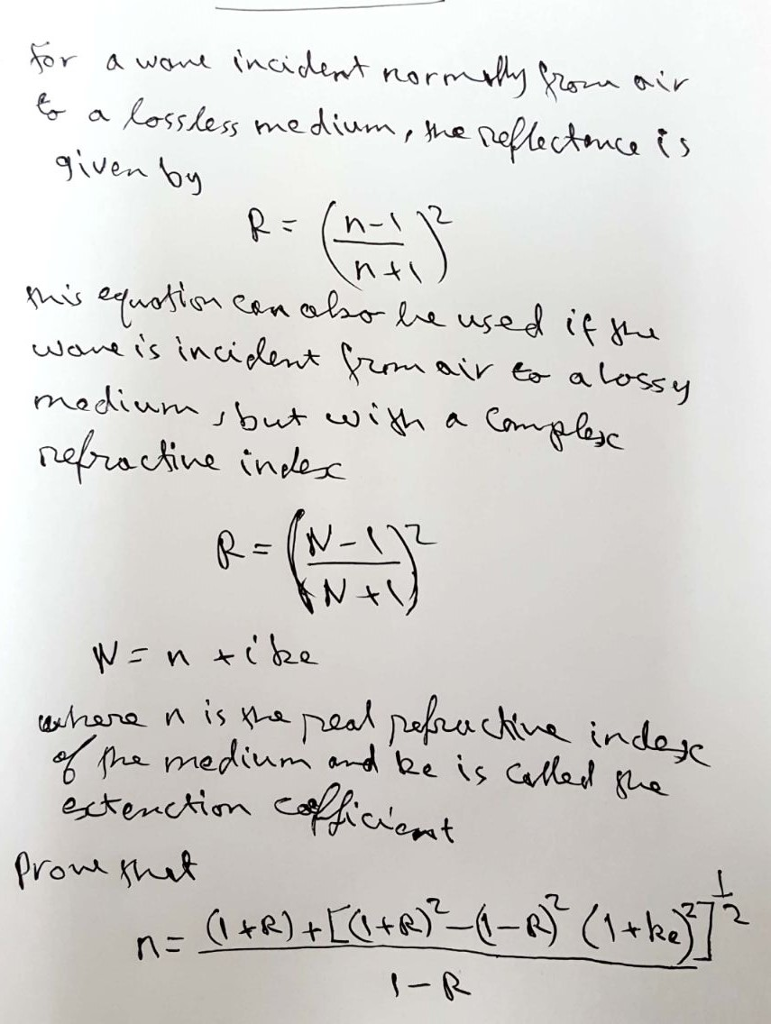 For a wave incident normally from air
to a lossless medium, the reflectance is
given by
R = (n-1 / n+1)²
this equation can also be used if the
wave is incident from air to a lossy
medium, but with a complex
refractive index
R = (N-1 / N+1)²
N = n + i ke
where n is the real refractive index
of the medium and ke is called the
extenction coefficient
Prove that
n = (1+R) + [(1+R)² - (1-R)² (1+ke²)]^½ / 1-R